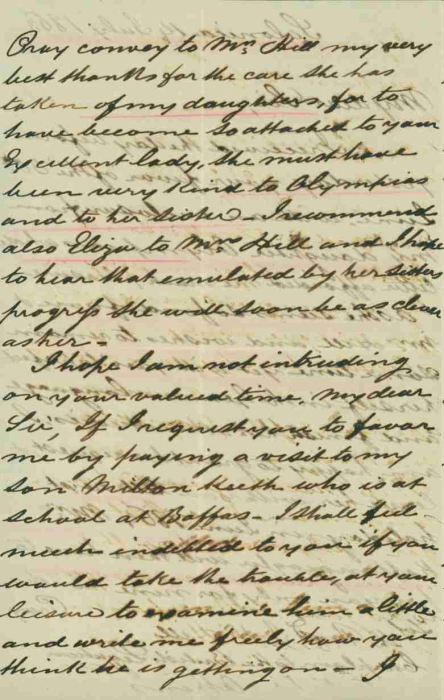 Pray convey to Mrs Hill my very
best thanks for the care she has
taken of my daughters, for to
have become so attached to your
Excellent lady, she must have
been very kind to Olympias
and to her sister - I recommend
also Eliza to Mrs Hill and I hope
to hear that emulated by her sisters
progress she will soon be as clever
as her -
I hope I am not intruding
on your valued time, my dear
Sir, If I request you to favor
me by paying a visit to my
son Milton Keeth who is at
school at Baffas - I shall feel
much indebted to you if you
would take the trouble, at your
leisure to examine him a little
and write me freely how you
think he is getting on - I